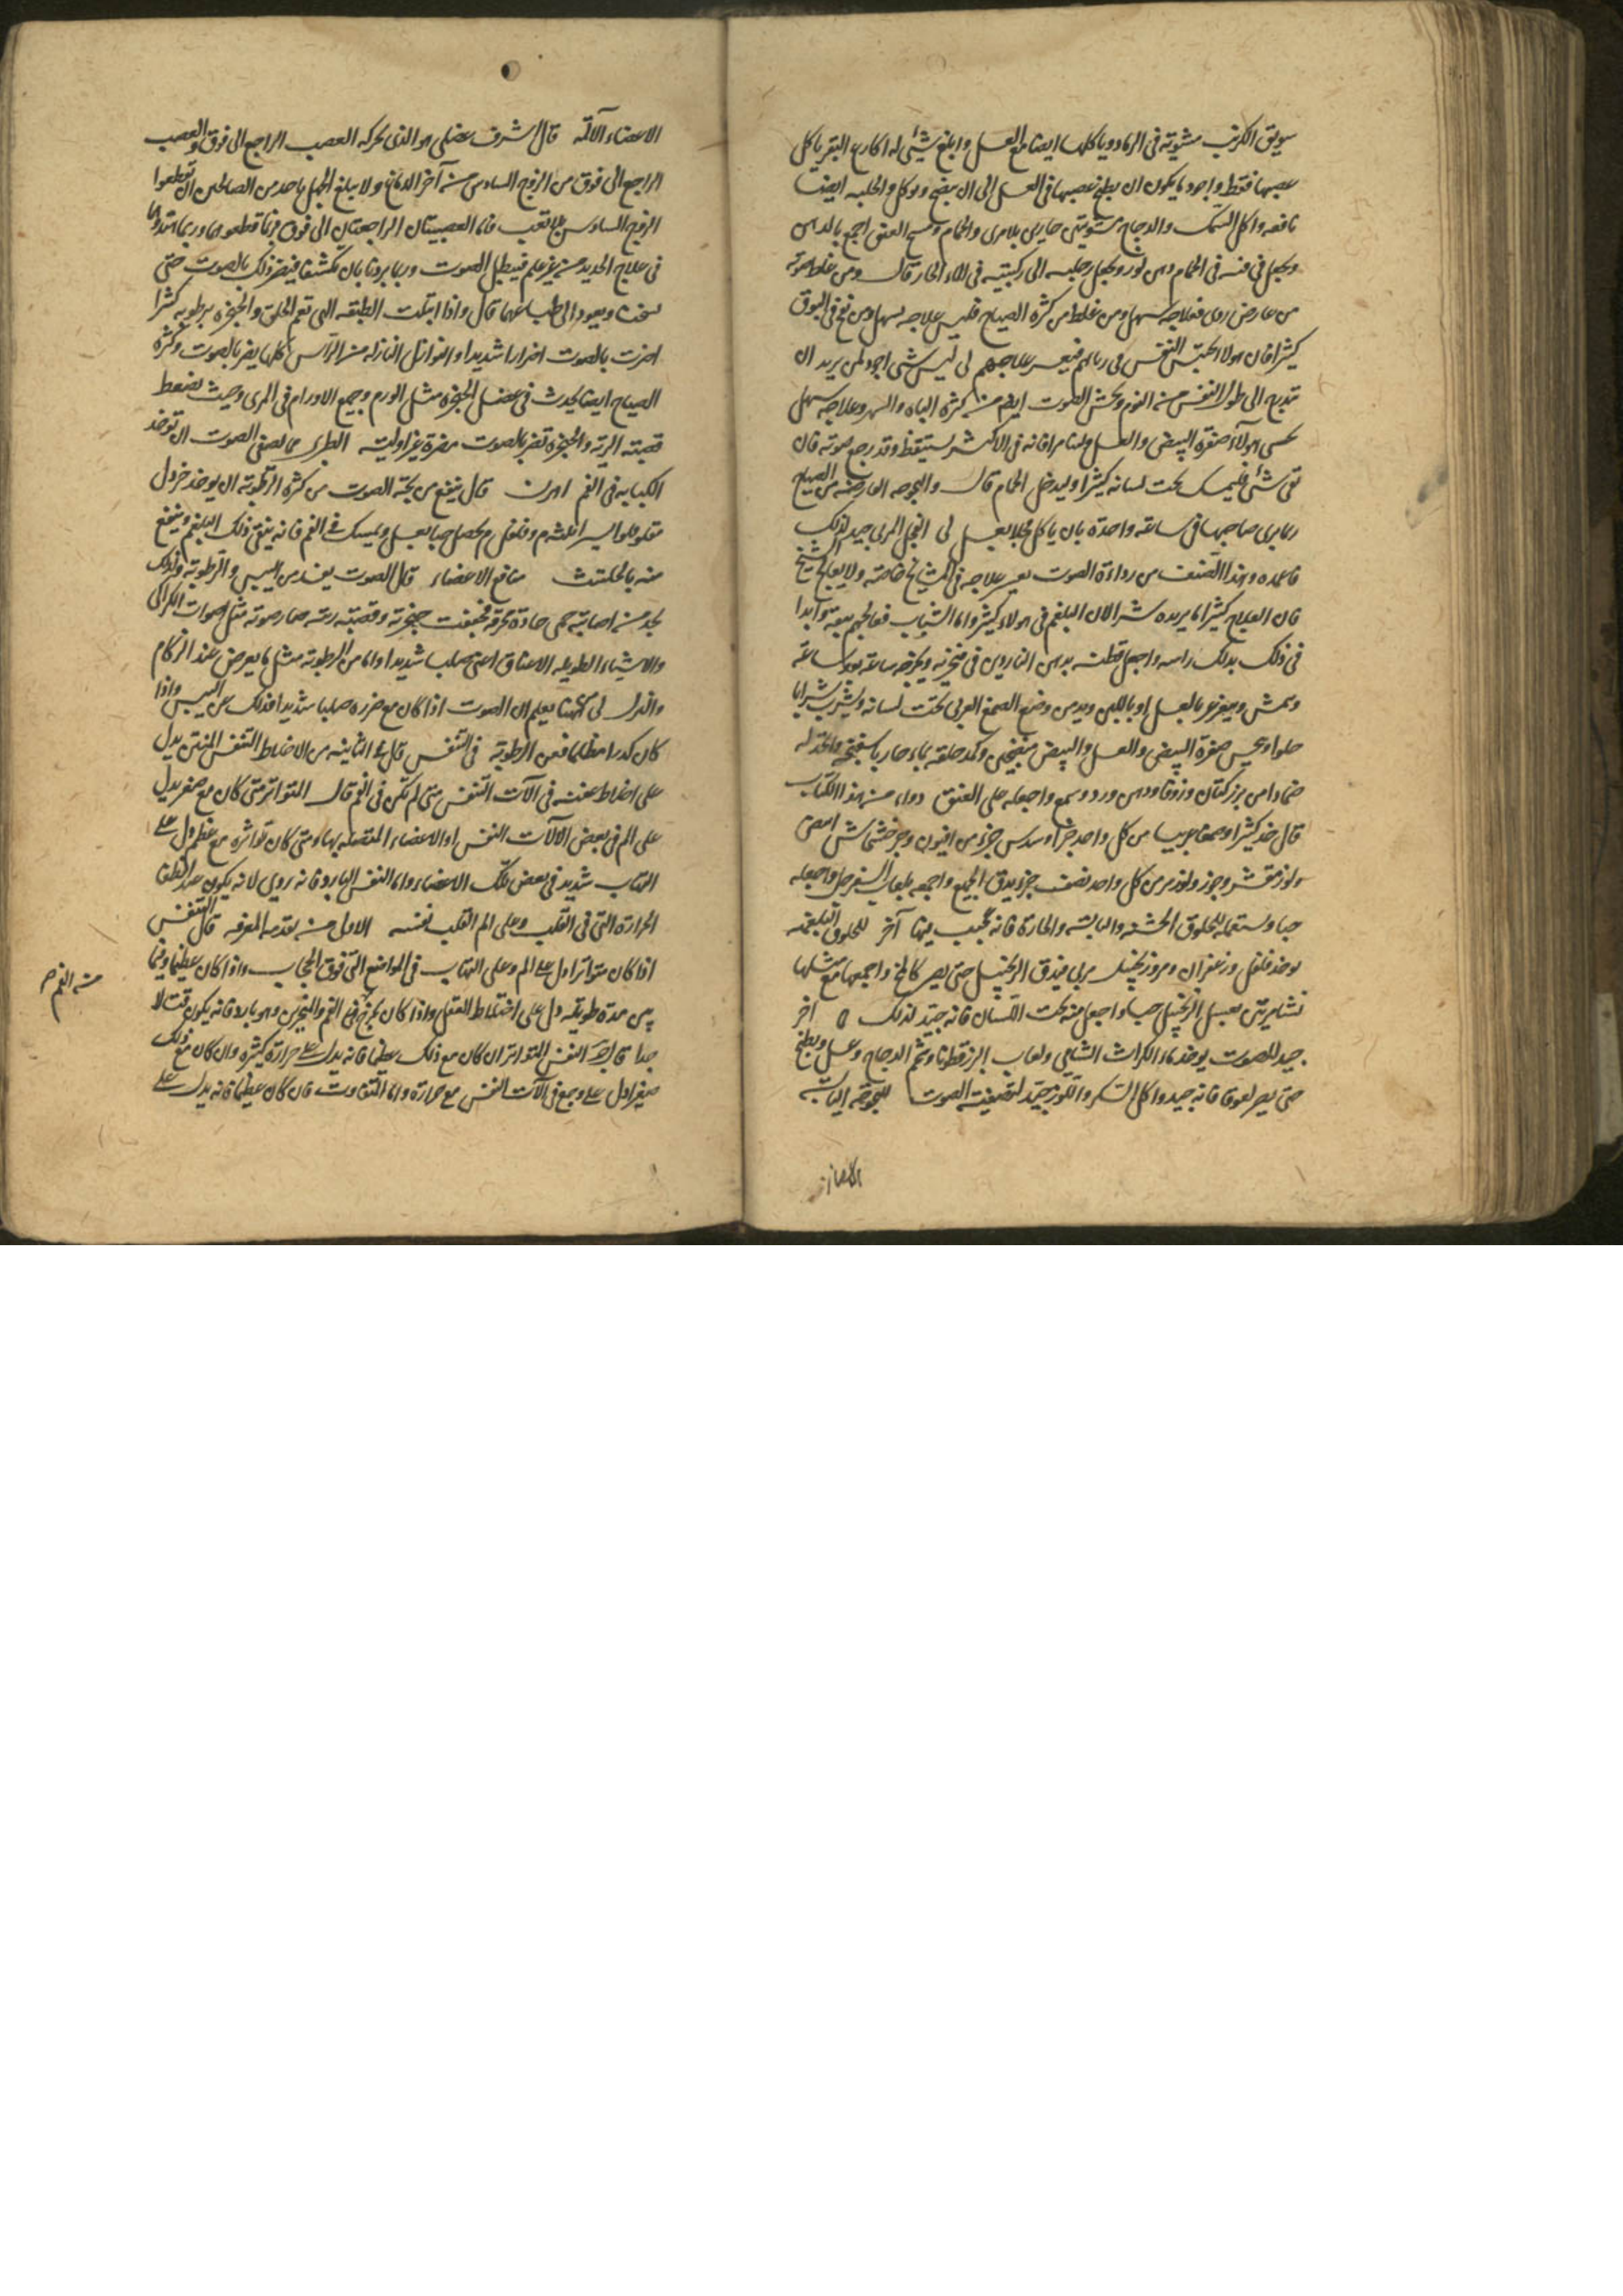 سويق الكرنب مشوية في الرماد وياكلها ايضا مع العسل وابلغ شيئ له اكارع البقر ياكل
عصبها فقط واجود ما يكون ان يطبخ عصبها في العسل الى ان ينضج ويوكل والحلبه ايضا
نافعه واكل السمك والدجاج مشويتين حارين بلا مرى والحمام ومسح العنق اجمع بالدهن
ويجعل في فمه في الحمام دهن لوز ويجعل رجليه الى ركبتيه في الماء الحار قال ومن غلظ صوته
من عارض ردى فعلاجه سهل ومن غلظ من كثرة الصياح فليس علاجه بسهل ومن نفخ في البوق
كثيرا فان هولا يحتبس النفس في رياتهم فيعسر علاجهم لى ليس شى اجود لمن يريد ان
يتدرج الى طول النفس من النوم ويخشن الصوت ايضا من كثرة الباه والسهر وعلاجه سهل
يحسى هولاء صفرة البيض والعسل وليناموا فانه في الاكثر يستيقظ وقد رجع صوته فان
بقى شئ فليمسك تحت لسانه كثيرا وليدخل الحمام قال والبحوحه العارضه من الصياح
ربما برى صاحبها في ساعه واحدة بان ياكل فجلا بعسل لى الفجل المربى جيد لذلك
فاعمده وهذا الصنف من رداءة الصوت يعسر علاجه في المشايخ خاصة ولا يعالج الشيخ
فان العلاج كثيرا ما يريده شرا لان البلغم في هولاء كثير واما الشباب فعالجهم بقوة وابدا
في ذلك بدلك راسه واجعل قطنه بدهن الناردين في منخريه ويخرجه ساعة بعد ساعة
ويمشى ويغرغر بالعسل او باللبن ويدمن وضع الصمغ العربى تحت لسانه ويشرب شرابا
حلوا ويحسى صفرة البيض والعسل والبيض منفجين وكمد حلقه بماء حار باسفنجه واتخذ له
ضمادا من بزر كتان وزوفا ودهن ورد وشمع واجعله على العنق دواء من هذا الكتاب
قال خذ كثيرا وصمغا عربيا من كل واحد جزءا وسدس جزء من افيون وجزء خشخاش ابيض
ولوز مقشر وجوز ولوز مر من كل واحد نصف جزء يدق الجميع واجمعه بلعاب السفرجل واجعله
حبا ويستعمله للحلوق الخشنه واليابسه والحارة فانه عجيب لها آخر للحلوق البلغميه
يوخذ فلفل وزعفران ومر وزنجبيل مربى فيدق الزنجبيل حتى يصير كالمخ واجمعها مع مثلها
نشا يربى بعسل الزنجبيل حبا واجعل منه تحت اللسان فانه جيد لذلك آخر
جيد للصوت يوخذ ماء الكراث الشامى ولعاب البزرقطونا وشحم الدجاج وعسل ويطبخ
حتى يصير لعوقا فانه جيد واكل السكر واللوز جيد لتصفية الصوت للبحوحة اليابسه
الاعضاء الآلمة قال اشرف عضلى هو الذى تحركه العصب الراجع الى فوق والعصب
الراجع الى فوق من الزوج السادس من آخر الدماغ ولا يبلغ الجهل باحد من الصالحين ان يقطعوا
الزوج السادس بلا تعب فاما العصبيتان الراجعتان الى فوق فربما قطعوهما وربما هتكوها
في علاج الحديد من غير علم فيبطل الصوت وربما بردتا بان تكشفا فيضر ذلك بالصوت حتى
تسخنا ويعودا الى طباعهما قال واذا ابتلت الطبقه التى تعم الحلق والحنجره برطوبه كثيرا
اضرت بالصوت اضرارا شديدا والنوازل النازله من الراس كلها يضر بالصوت وكثرة
الصياح ايضا يحدث في عضل الحنجرة مثل الورم وجميع الاورام في المرى وحيث يضغط
قصبة الرية والحنجرة تضر بالصوت مضرة غير اولية الطبرى مما يصفى الصوت ان توخذ
الكبابه في الفم اهرن قال ينفع من بحة الصوت من كثرة الرطوبه ان يوخذ خردل
مقلو مر وفلفل ويجعل حبا بعسل ويمسك في الفم فانه ينقى ذلك البلغم وينفع
منه بالحلتيث منافع الاعضاء قال الصوت يفسد من اليبس والرطوبه ولذلك
نجد من اصابته حمى حادة محرقه فجففت حنجرته وقصبة ريته صار صوته مثل اصوات الكراكى
والاشياء الطويله الاعناق اعنى صلبا شديدا واما من الرطوبه مثل ما يعرض عند الزكام
والنزل لى ههنا يعلم ان الصوت اذا كان مع ضرره صلبا شديدا فذلك عن اليبس واذا
كان كدرا مظلما فعن الرطوبة في التنفس قال في الثانيه من الاخلاط التنفس المنتن يدل
على اخلاط عفنه في آلات التنفس متى لم تكن في الفم قال المتواتر متى كان مع صغر يدل
على الم في بعض الآلات النفس او الاعضاء المتصله بها ومتى كان تواتره مع عظم دل على
التهاب شديد في بعض تلك الاعضاء واما النفس البارد فانه ردى لانه يكون عند انطفاء
الحرارة التى في القلب وعلى الم القلب نفسه الاولى من تقدمه المعرفه قال التنفس
اذا كان متواترا دل على الم وعلى التهاب في المواضع التى فوق الحجاب واذا كان عظيما وفيما
بين مدة طويله دل على اختلاط العقل واذا كان يخرج في الفم والمنخرين وهو بارد فانه يكون قتالا
جدا قال ج النفس المتواتر ان كان مع ذلك عظيما فانه يدل على حرارة كثيرة وان كان مع ذلك
صغيرا دل على وجع في آلات النفس مع حرارة واما المتفاوت فان كان عظيما فانه يدل على
من الفم